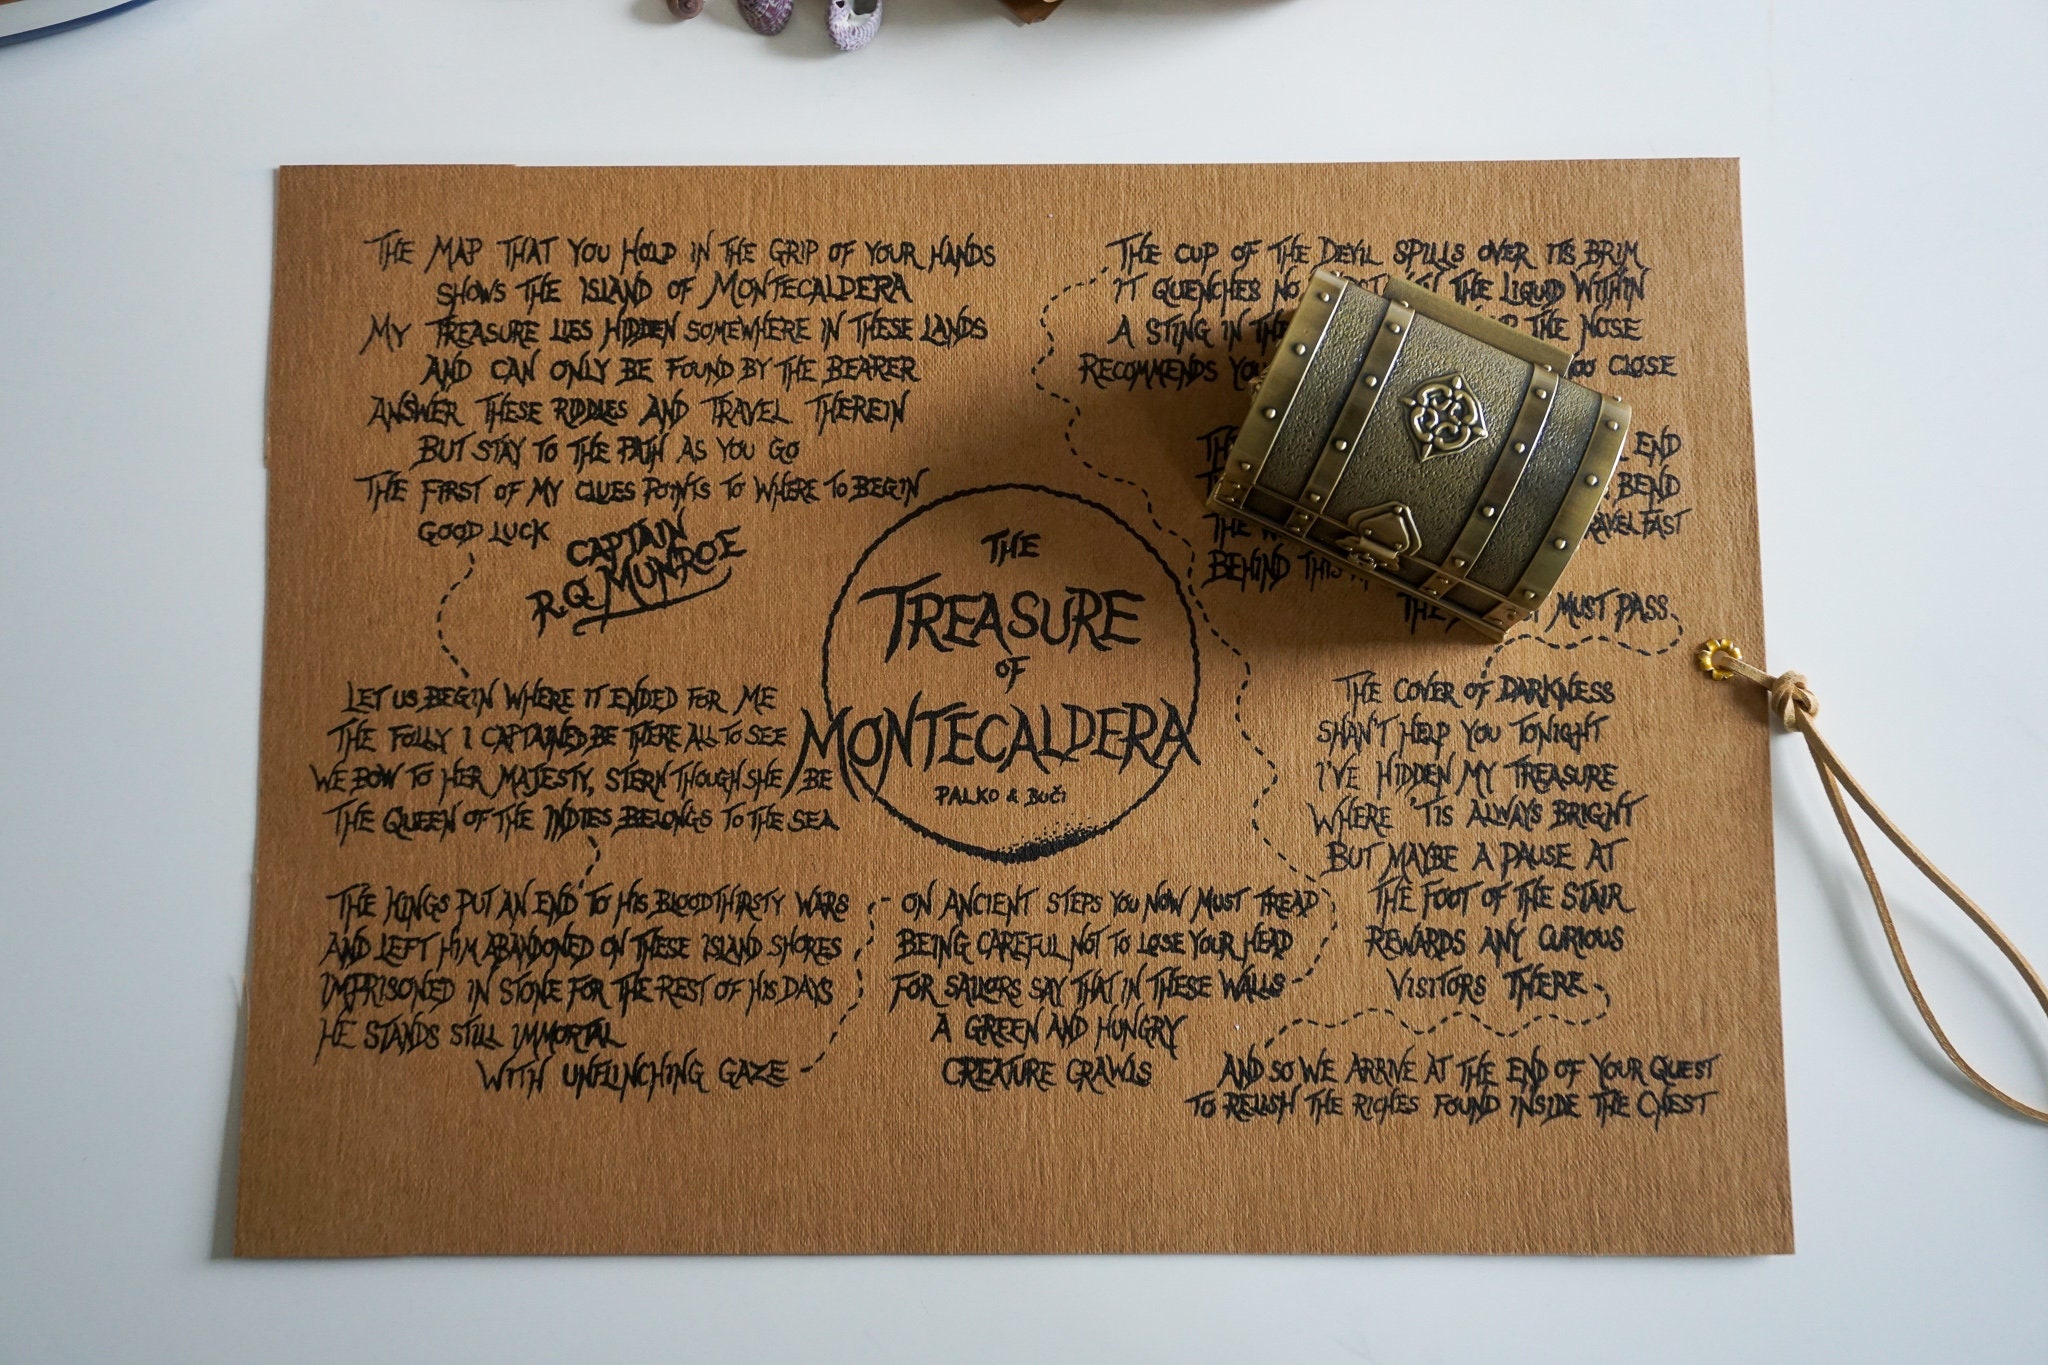 THE MAP THAT YOU HOLD IN THE GRIP OF YOUR HANDS
SHOWS THE ISLAND OF MONTECALDERA
MY TREASURE LIES HIDDEN SOMEWHERE IN THESE LANDS
AND CAN ONLY BE FOUND BY THE BEARER
ANSWER THESE RIDDLES AND TRAVEL THEREIN
BUT STAY TO THE PATH AS YOU GO
THE FIRST OF MY CLUES POINTS TO WHERE TO BEGIN
GOOD LUCK
CAPTAIN
R.Q. MUNROE
LET US BEGIN WHERE IT ENDED FOR ME
THE FOLLY I CAPTAINED BE THERE ALL TO SEE
WE BOW TO HER MAJESTY, STERN THOUGH SHE BE
THE QUEEN OF THE INDIES BELONGS TO THE SEA
THE KINGS PUT AN END TO HIS BLOODTHIRSTY WARS
AND LEFT HIM ABANDONED ON THESE ISLAND SHORES
IMPRISONED IN STONE FOR THE REST OF HIS DAYS
HE STANDS STILL IMMORTAL
WITH UNFLINCHING GAZE
THE
TREASURE
OF
MONTECALDERA
PALKO & BUČI
ON ANCIENT STEPS YOU NOW MUST TREAD
BEING CAREFUL NOT TO LOSE YOUR HEAD
FOR SAILORS SAY THAT IN THESE WALLS
A GREEN AND HUNGRY
CREATURE CRAWLS
THE CUP OF THE DEVIL SPILLS OVER ITS BRIM
IT QUENCHES NO THE LIQUID WITHIN
A STING IN THE THE NOSE
RECOMMENDS CLOSE
END
BEND
THE FAST
BEHIND THIS
MUST PASS
THE COVER OF DARKNESS
SHAN'T HELP YOU TONIGHT
I'VE HIDDEN MY TREASURE
WHERE 'TIS ALWAYS BRIGHT
BUT MAYBE A PAUSE AT
THE FOOT OF THE STAIR
REWARDS ANY CURIOUS
VISITORS THERE
AND SO WE ARRIVE AT THE END OF YOUR QUEST
TO RELISH THE RICHES FOUND INSIDE THE CHEST